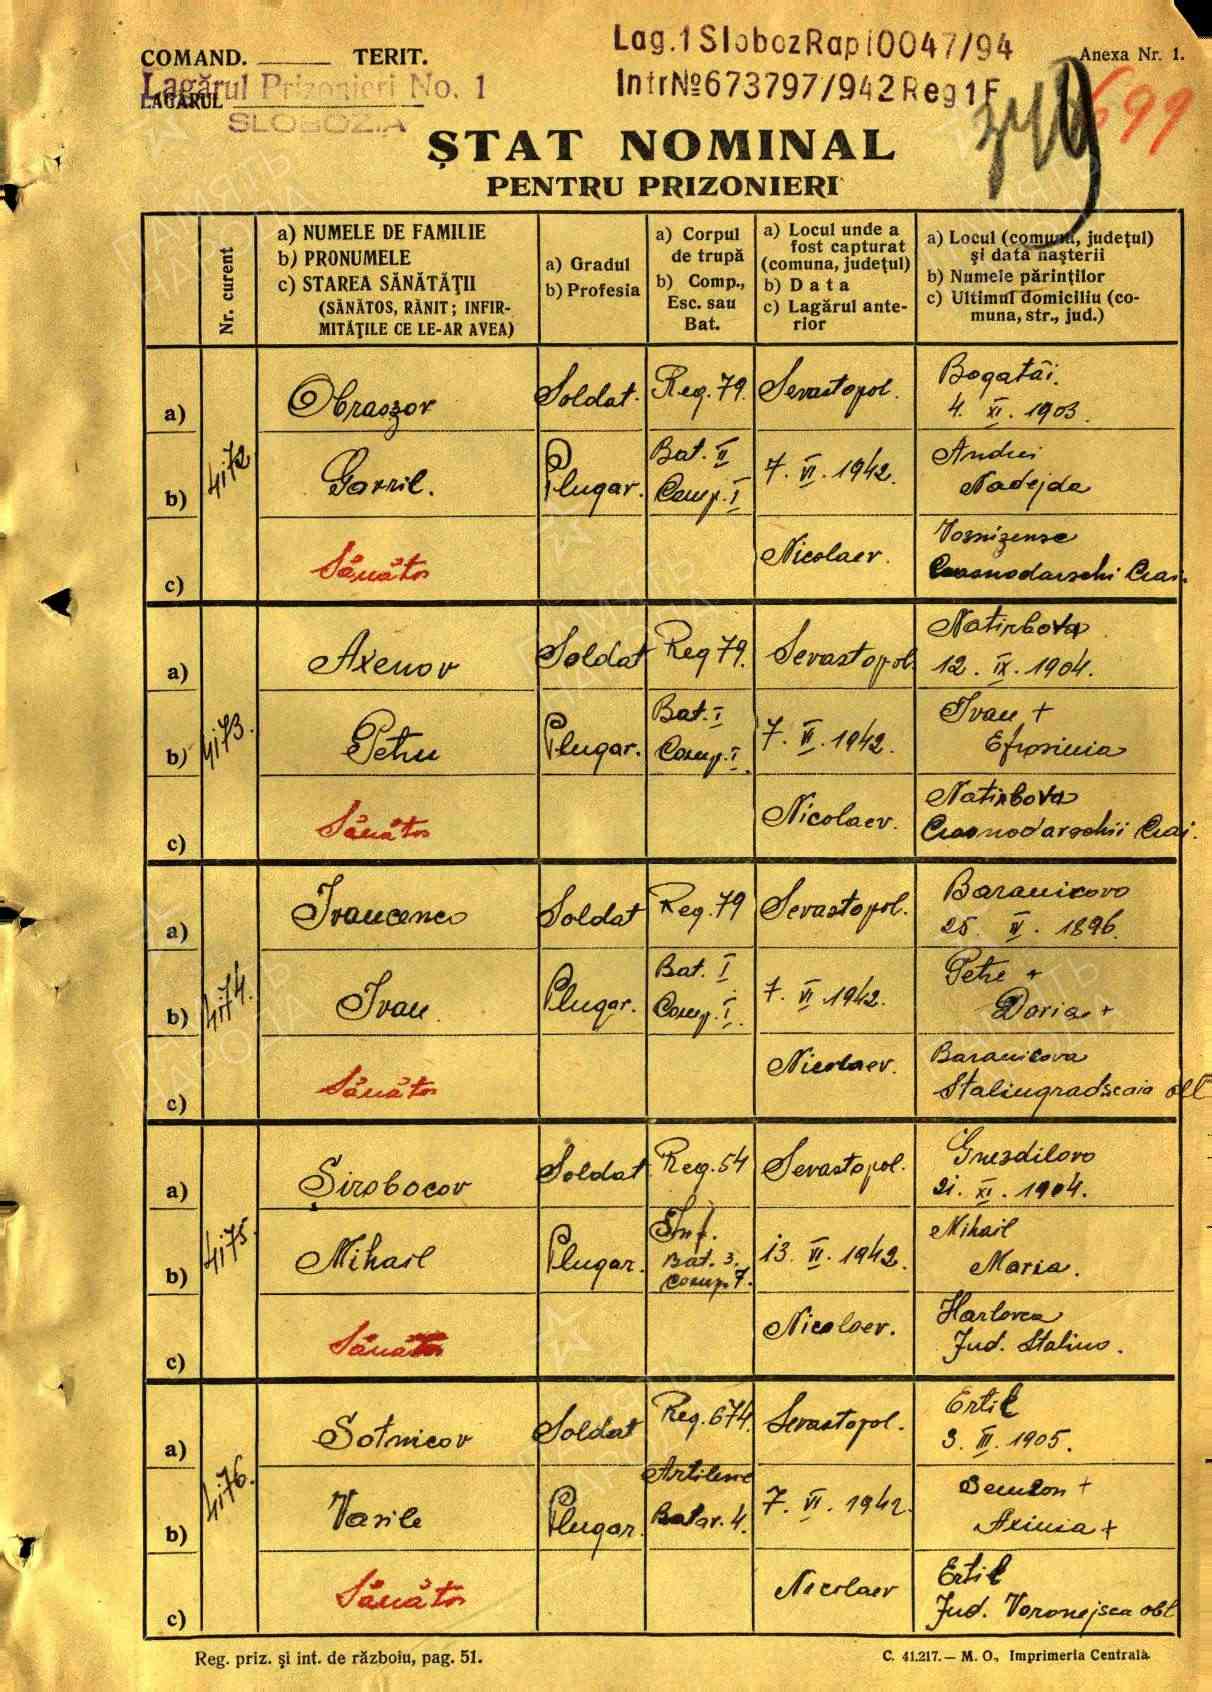 COMAND. ______ TERIT.
Lagărul Prizonieri No. 1
LAGĂRUL
SLOBOZIA
Lag.1 Sloboz Rap 10047/94
Intr № 673797/942 Reg 1 F
Anexa Nr. 1.
699
ȘTAT NOMINAL
PENTRU PRIZONIERI
Nr. curent
a) NUMELE DE FAMILIE
b) PRONUMELE
c) STAREA SĂNĂTĂȚII
(SĂNĂTOS, RĂNIT; INFIR-
MITĂȚILE CE LE-AR AVEA)
a) Gradul
b) Profesia
a) Corpul
de trupă
b) Comp.,
Esc. sau
Bat.
a) Locul unde a
fost capturat
(comuna, județul)
b) Data
c) Lagărul ante-
rior
a) Locul (comuna, județul)
și data nașterii
b) Numele părinților
c) Ultimul domiciliu (co-
muna, str., jud.)
4172
a) Obraszov Soldat. Reg. 79. Sevastopol. Bogatâi.
4. XI. 1903.
b) Gavril. Plugar. Bat. II Comp. I 7. VI. 1942. Andrei
Nadejda
c) Sănătos Nicolaev. Vosnizense
Crasnodarschi Crai.
4173.
a) Axenov Soldat Reg 79. Sevastopol. Natirbova
12. IX. 1904.
b) Petru Plugar. Bat. I Comp. I 7. VI. 1942. Ivan +
Efrosinia
c) Sănătos Nicolaev. Natirbova
Crasnodarschii Crai.
4174.
a) Ivancenco Soldat Reg. 79 Sevastopol. Baranicovo
25. IV. 1896.
b) Ivan Plugar. Bat. I Comp. I. 7. VI. 1942. Petre +
Daria +
c) Sănătos Nicolaev. Baranicova
Stalingradscaia obl
4175.
a) Șirobocov Soldat Reg. 54 Sevastopol. Gnezdilovo
21. XI. 1904.
b) Mihail Plugar. Inf. Bat. 3. Comp. 7. 13. VI. 1942. Mihail
Maria.
c) Sănătos Nicolaev. Harlovca
Jud. Stalino.
4176.
a) Sotnicov Soldat Reg. 674. Sevastopol. Ertil
3. III. 1905.
b) Vasile Plugar. Artilerie Batar. 4. 7. VI. 1942. Semion +
Axinia +
c) Sănătos Nicolaev Ertil
Jud. Voronejsca obl
Reg. priz. și int. de războiu, pag. 51.
C. 41.217. — M. O., Imprimeria Centrală
ПАМЯТЬ
НАРОДА